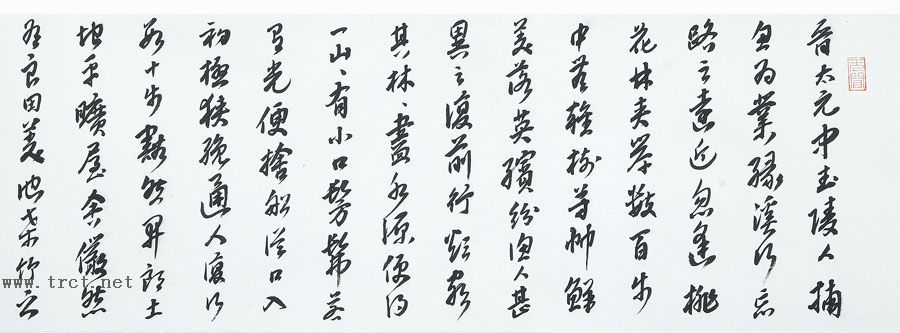 晉太元中武陵人捕
魚為業緣溪行忘
路之遠近忽逢桃
花林夾岸數百步
中無雜樹芳艸鮮
美落英繽紛漁人甚
異之復前行欲窮
其林〻盡水源便得
一山〻有小口髣髴若
有光便捨船從口入
初極狹纔通人復行
數十步豁然開朗土
地平曠屋舍儼然
有良田美池桑竹之
www.trct.net